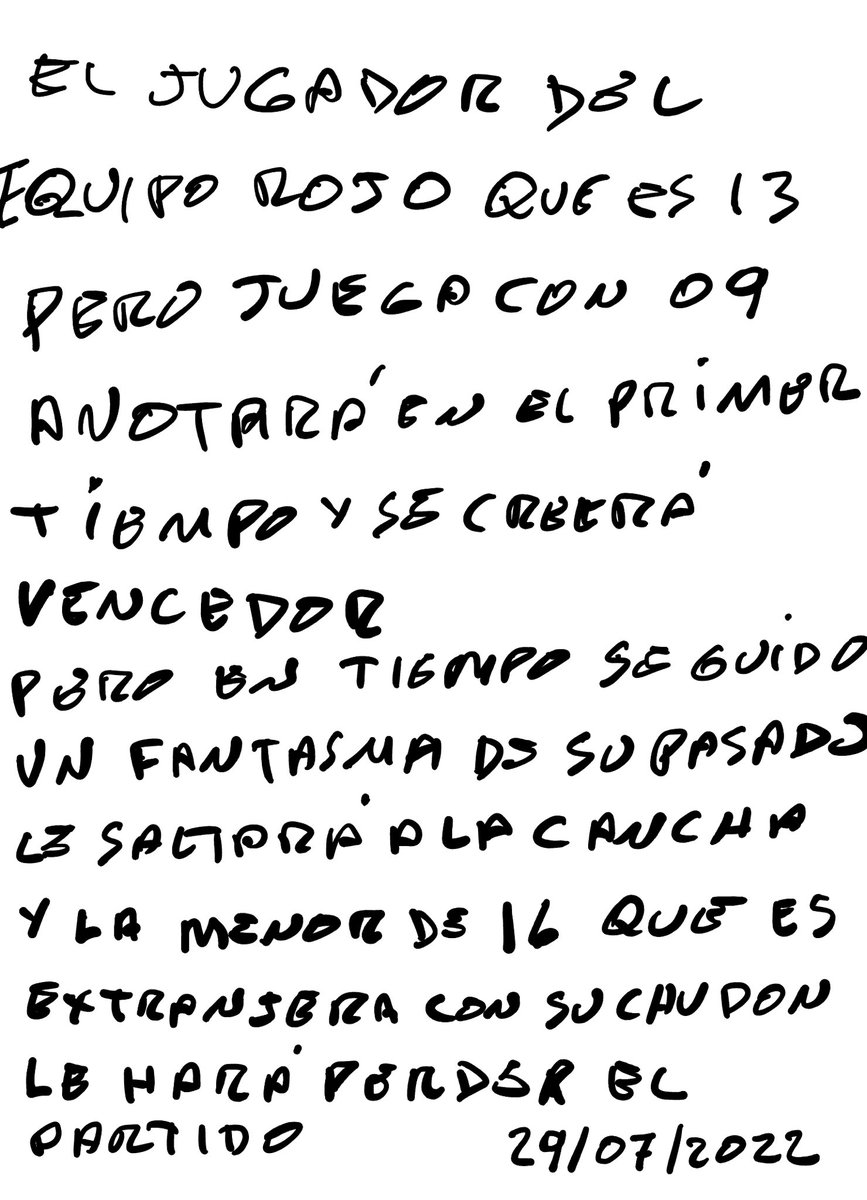 EL JUGADOR DEL
EQUIPO ROJO QUE ES 13
PERO JUEGA CON 09
ANOTARÁ EN EL PRIMER
TIEMPO Y SE CREERÁ
VENCEDOR
PERO EN TIEMPO SEGUIDO
UN FANTASMA DE SU PASADO
LE SALTARÁ A LA CANCHA
Y LA MENOR DE 16 QUE ES
EXTRANJERA CON SU CHUDON
LE HARÁ PERDER EL
PARTIDO 29/07/2022